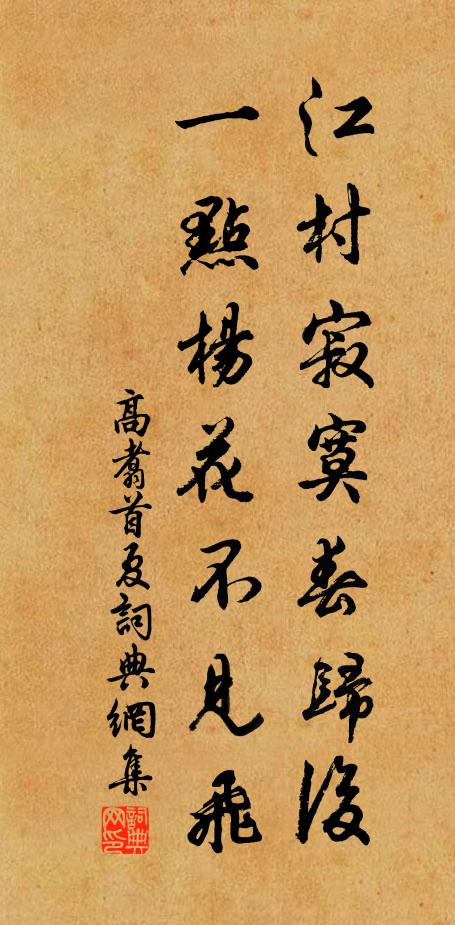 江村寂寞春歸後
一點楊花不見飛
高翥首夏詞典網集
詞典網印